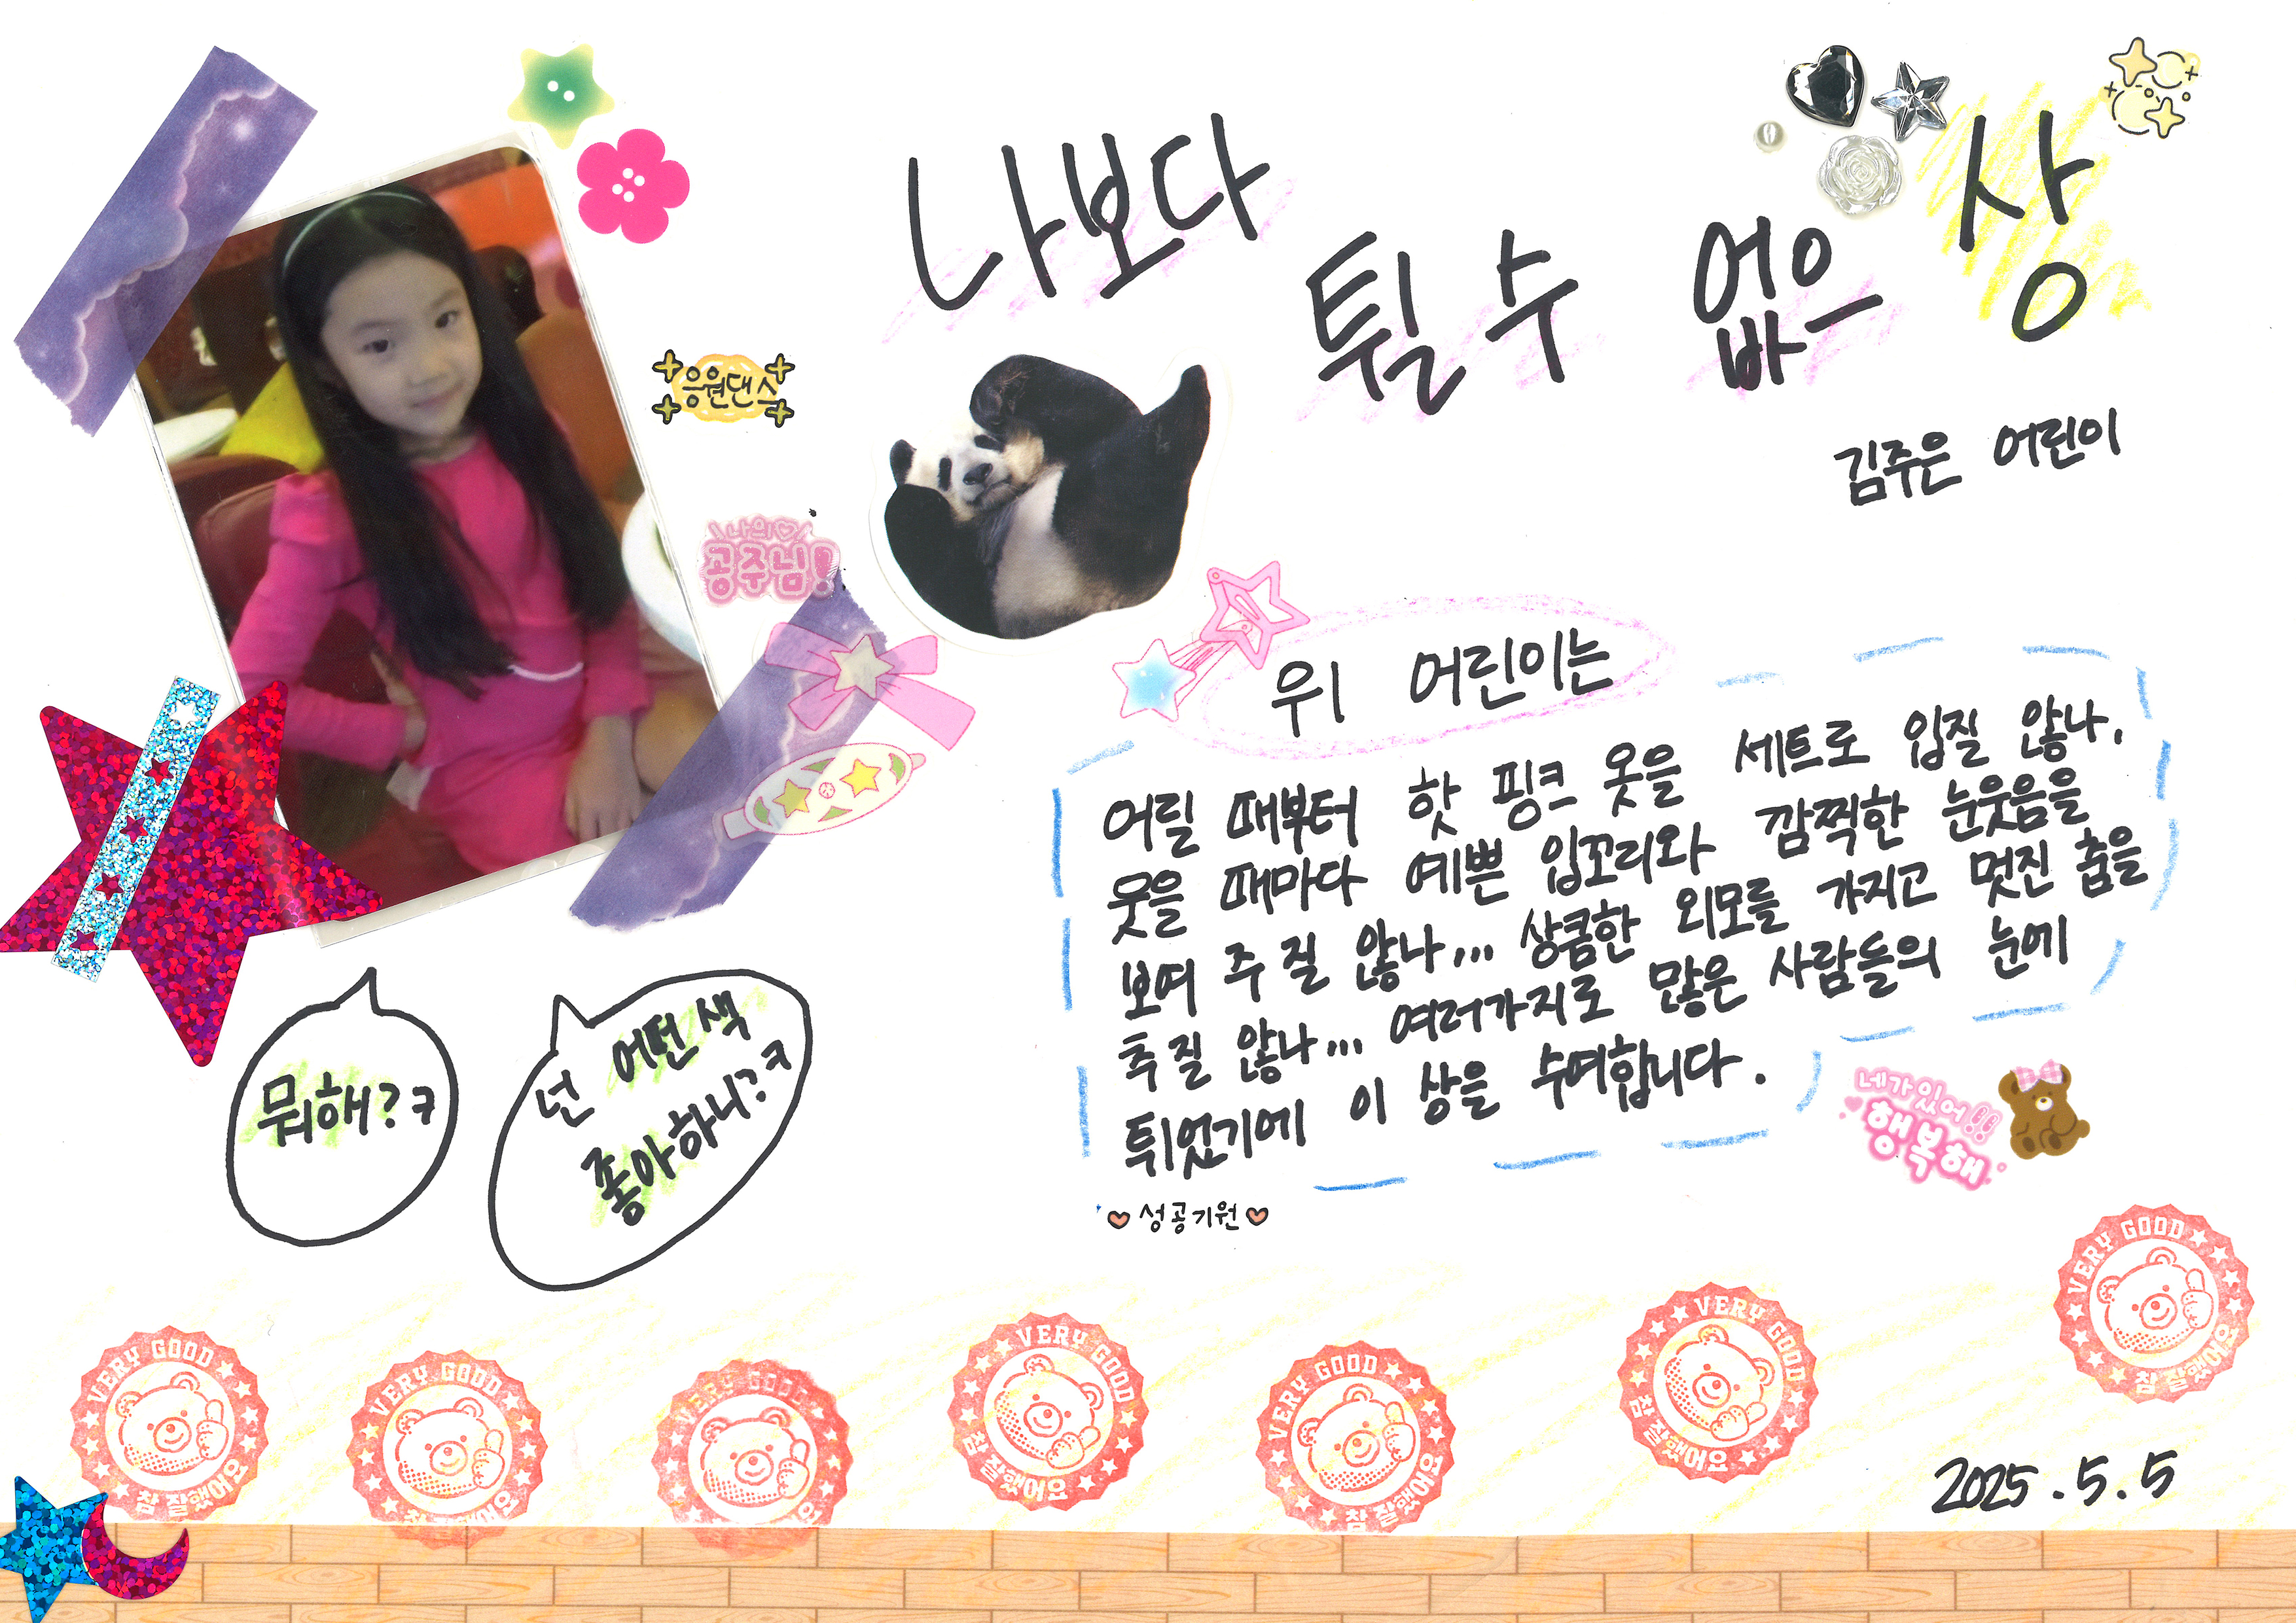 나보다
튈 수 없으 상
김주은 어린이
응원댄스
나의♡
공주님!
위 어린이는
어릴 때부터 핫 핑크 옷을 세트로 입질 않나,
웃을 때마다 예쁜 입꼬리와 깜찍한 눈웃음을
보여 주질 않나... 상큼한 외모를 가지고 멋진 춤을
추질 않나... 여러가지로 많은 사람들의 눈에
튀었기에 이 상을 수여합니다.
뭐해?ㅋ
넌 어떤 색
좋아하니?ㅋ
네가 있어!!
행복해
성공기원
VERY GOOD
참 잘했어요
VERY GOOD
참 잘했어요
VERY GOOD
참 잘했어요
VERY GOOD
참 잘했어요
VERY GOOD
참 잘했어요
VERY GOOD
참 잘했어요
VERY GOOD
참 잘했어요
2025.5.5